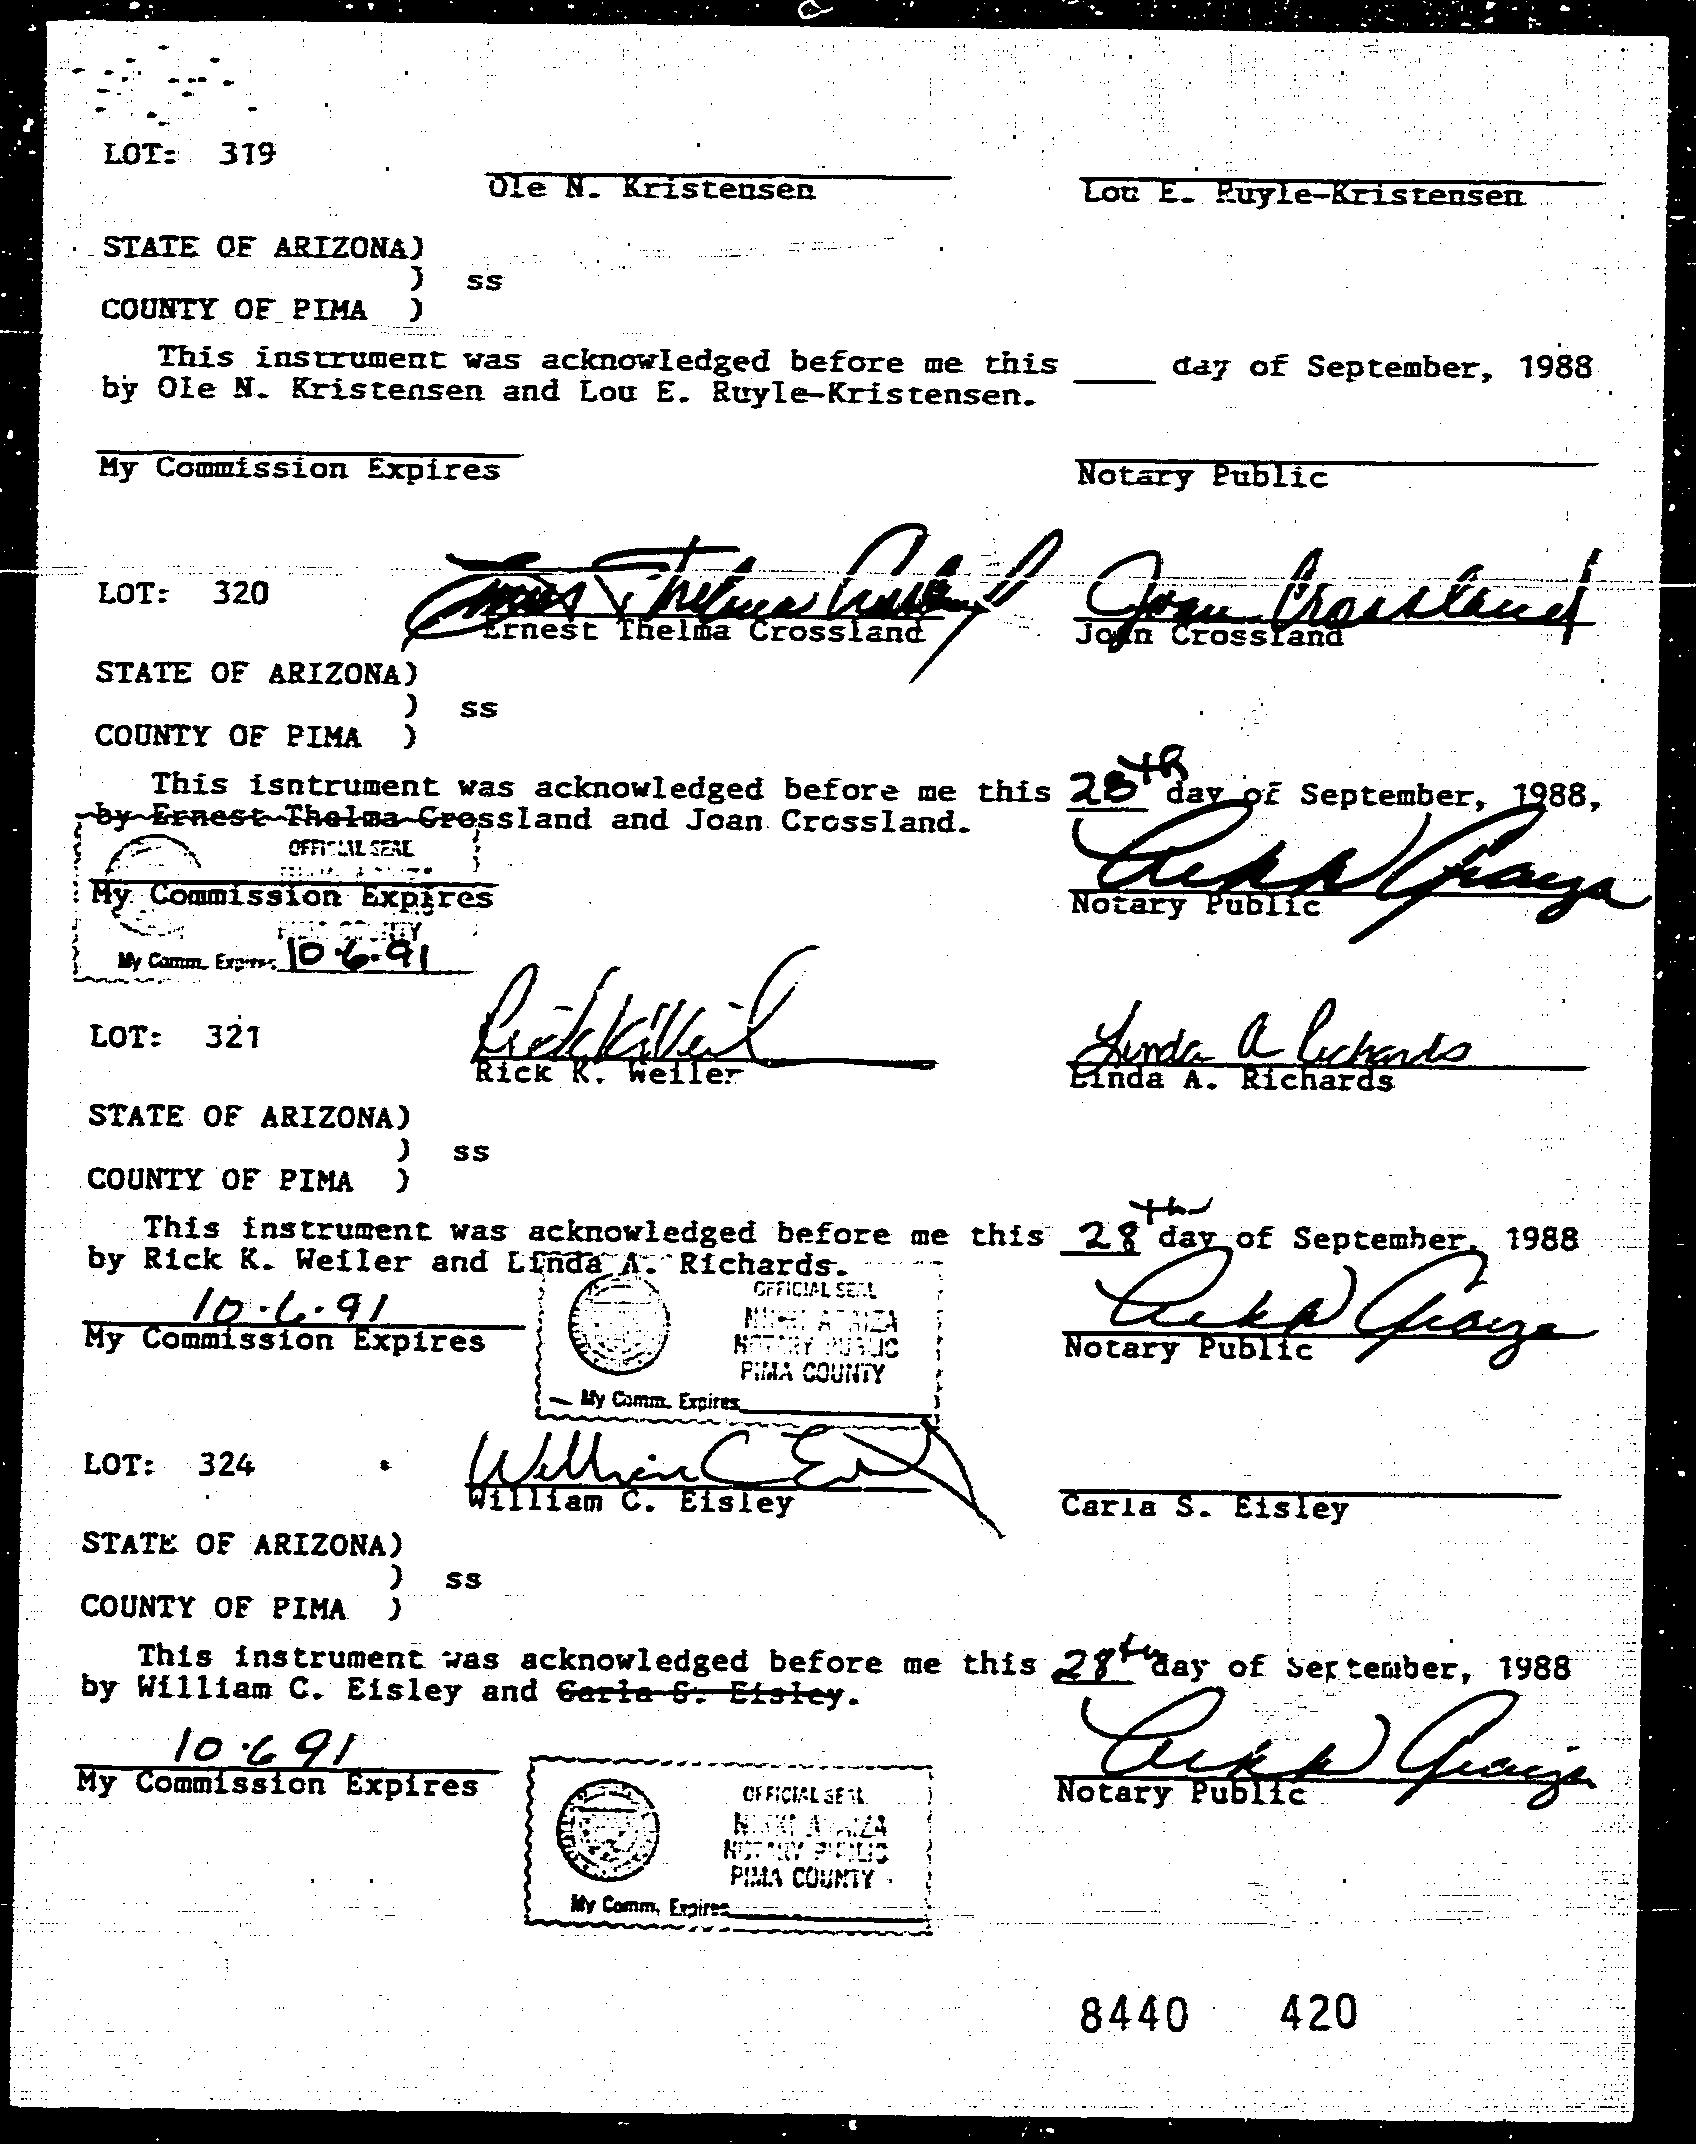 LOT: 319
Ole N. Kristensen Lou E. Ruyle-Kristensen
STATE OF ARIZONA)
) ss
COUNTY OF PIMA )
This instrument was acknowledged before me this ____ day of September, 1988
by Ole N. Kristensen and Lou E. Ruyle-Kristensen.
My Commission Expires Notary Public
Thelma Joan Crossland
LOT: 320
Ernest Thelma Crossland Joan Crossland
STATE OF ARIZONA)
) ss
COUNTY OF PIMA )
This isntrument was acknowledged before me this 28th day of September, 1988,
by Ernest Thelma Crossland and Joan Crossland.
OFFICIAL SEAL
My Commission Expires Notary Public
My Comm. Expires 10-6-91
LOT: 321 Rick K Weiler Linda A Richards
Rick K. Weiler Linda A. Richards
STATE OF ARIZONA)
) ss
COUNTY OF PIMA )
This instrument was acknowledged before me this 28th day of September, 1988
by Rick K. Weiler and Linda A. Richards.
OFFICIAL SEAL
10-6-91
My Commission Expires NOTARY PUBLIC Notary Public
PIMA COUNTY
My Comm. Expires
LOT: 324 William C
William C. Eisley Carla S. Eisley
STATE OF ARIZONA)
) ss
COUNTY OF PIMA )
This instrument was acknowledged before me this 28th day of September, 1988
by William C. Eisley and Carla S. Eisley.
10-6 91
My Commission Expires Notary Public
OFFICIAL SEAL
NOTARY PUBLIC
PIMA COUNTY
My Comm. Expires
8440 420